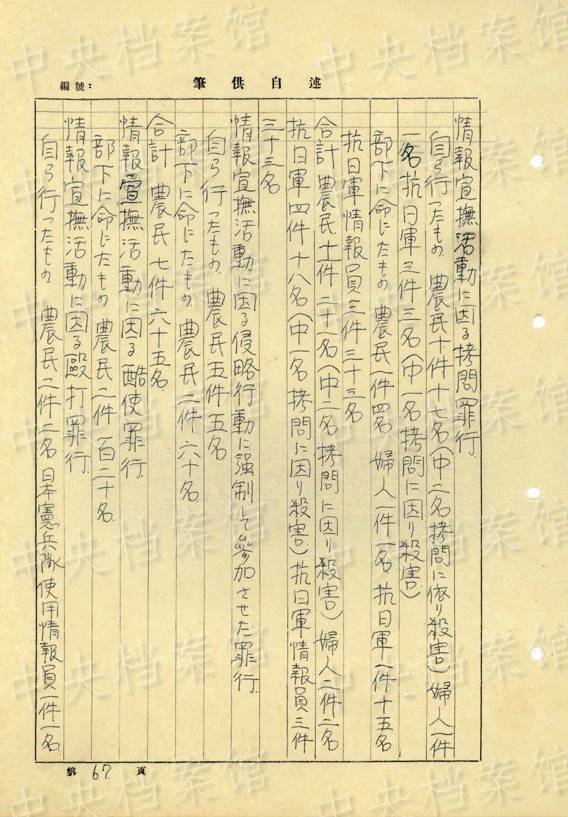 編號：
筆供自述
情報宣撫活動に因る拷問罪行.
自ら行ったもの 農民十件十七名(中二名拷問に依り殺害) 婦人一件
一名 抗日軍三件三名(中一名拷問に因り殺害)
部下に命じたもの 農民一件四名 婦人一件一名 抗日軍一件十五名
抗日軍情報員三件三十三名
合計 農民十一件二十一名(中二名拷問に因り殺害) 婦人二件二名
抗日軍四件十八名(中一名拷問に因り殺害) 抗日軍情報員三件
三十三名
情報宣撫活動に因る侵略行動に強制して參加させた罪行.
自ら行ったもの. 農民五件五名.
部下に命じたもの 農民二件六十名.
合計 農民七件六十五名.
情報宣撫活動に因る酷使罪行.
部下に命じたもの 農民二件一百二十名.
情報宣撫活動に因る毆打罪行.
自ら行ったもの 農民二件二名 日本憲兵隊使用情報員一件一名.
第 67 頁
中央档案馆